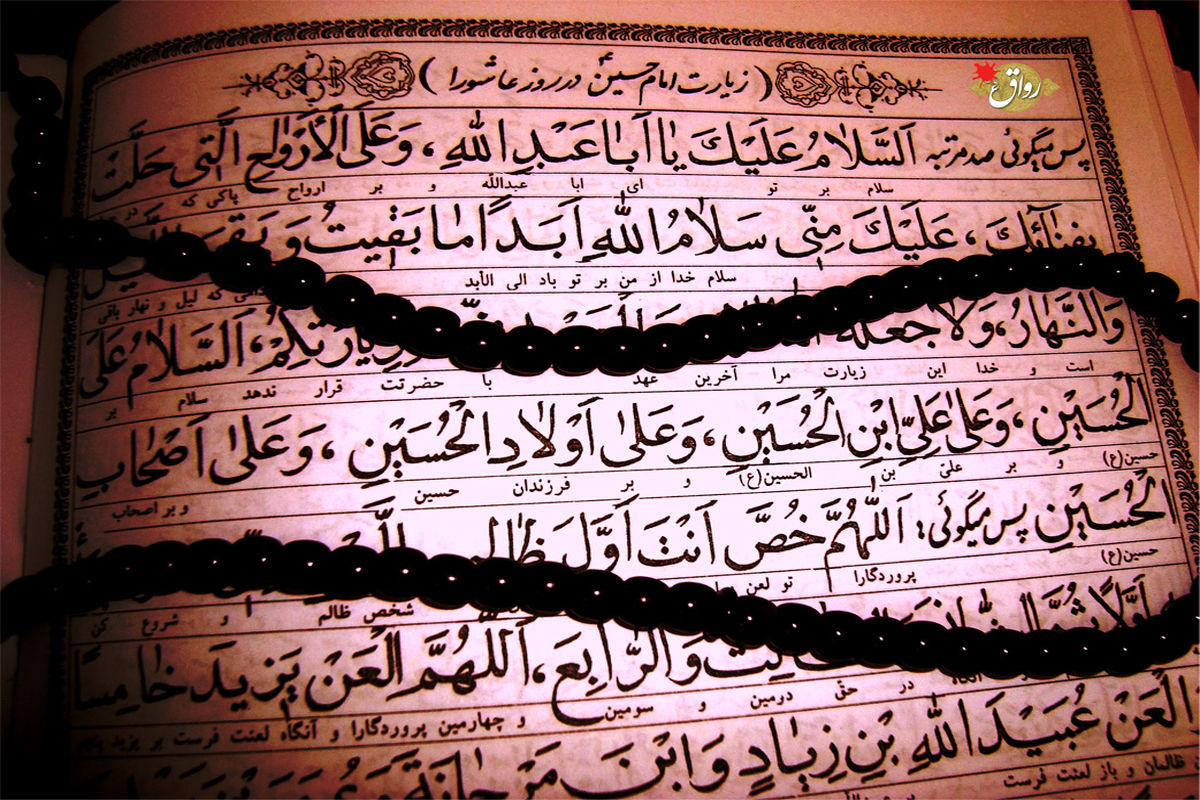 ( زیارت امام حسینؑ در روز عاشورا )
رواق
پس میگوئی صد مرتبه اَلسَّلامُ عَلَیْكَ یا اَباعَبْدِاللهِ ، وَعَلَی الْأَرْواحِ الَّتی حَلَّتْ
سلام بر تو ای ابا عبدالله و بر ارواح پاکی که در
بِفِنآئِكَ ، عَلَیْكَ مِنّی سَلامُ اللهِ اَبَدًا ما بَقیتُ وَ بَقِیَ
سلام خدا از من بر تو باد الی الأبد که لیل و نهار باقی
وَالنَّهارُ، وَلا جَعَلَهُ اَلسَّلامُ عَلَی
است و خدا این زیارت مرا آخرین عهد با حضرتت قرار ندهد سلام بر
الْحُسَیْنِ ، وَعَلی عَلِیِّ ابْنِ الْحُسَیْنِ ، وَعَلی اَوْلادِ الْحُسَیْنِ ، وَعَلی اَصْحابِ
حسین(ع) و بر علیّ بن الحسین(ع) و بر فرزندان حسین و بر اصحاب
الْحُسَیْنِ پس میگوئی : اَللّهُمَّ خُصَّ اَنْتَ اَوَّلَ
حسین(ع) پروردگارا تو لعن شخص ظالم و شروع کن
اَوَّلًا وَالرّابِعَ ، اَللّهُمَّ الْعَنْ یَزیدَ خامِسًا
در حق دومین و سومین و چهارمین پروردگارا و آنگاه لعنت فرست بر یزید پنجم
الْعَنْ عُبَیْدَ اللهِ بْنِ زِیادٍ وَ ابْنَ مَرْجانَةَ
ظالمان و باز لعنت فرست